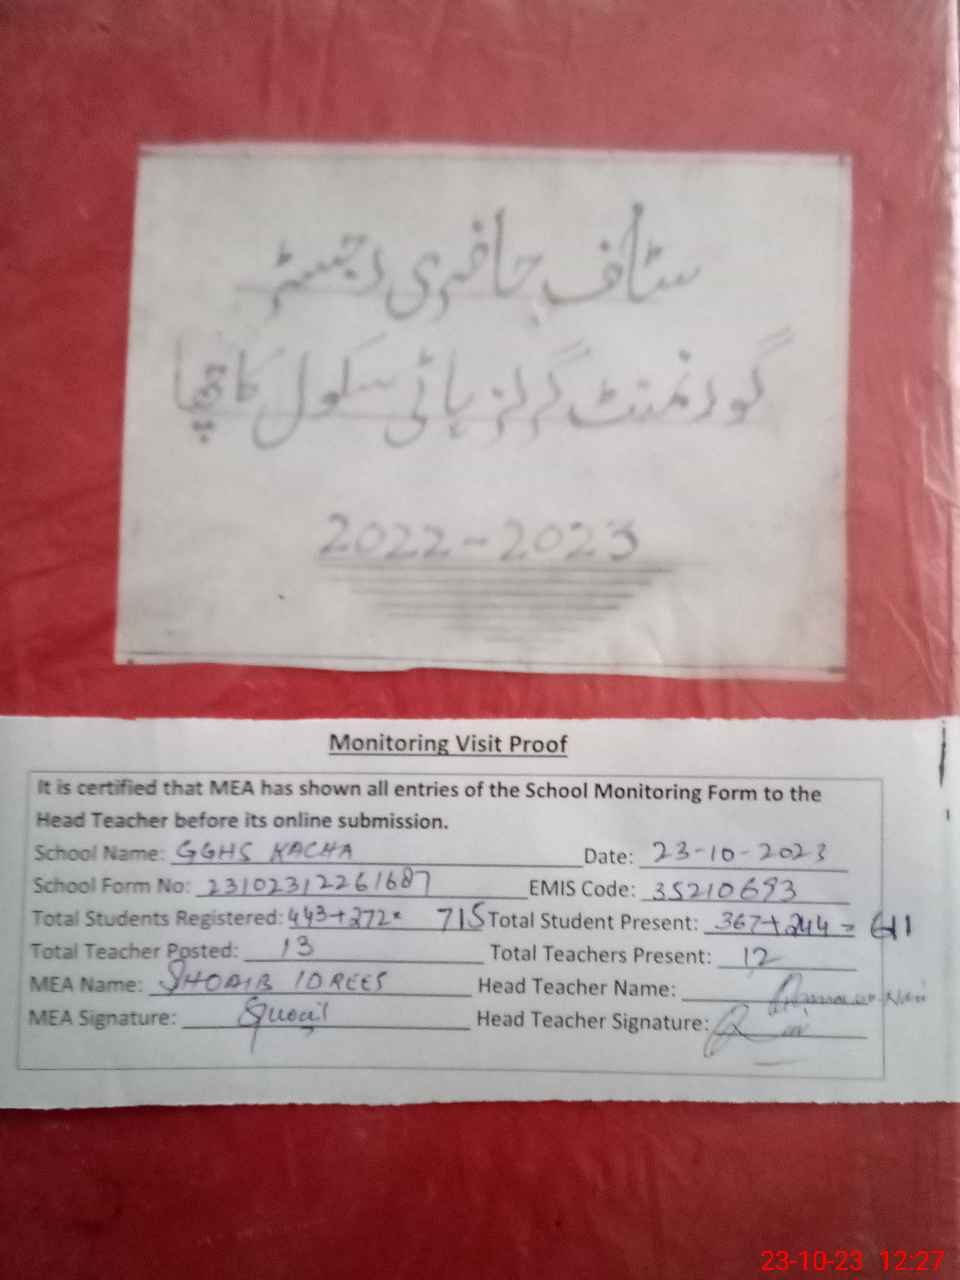 سٹاف حاضری رجسٹر
گورنمنٹ گرلز ہائی سکول کاچھا
2022-2023
Monitoring Visit Proof
It is certified that MEA has shown all entries of the School Monitoring Form to the
Head Teacher before its online submission.
School Name: GGHS KACHA Date: 23-10-2023
School Form No: 23102312261687 EMIS Code: 35210693
Total Students Registered: 443+272= 715 Total Student Present: 367+244 = 611
Total Teacher Posted: 13 Total Teachers Present: 12
MEA Name: SHOAIB IDREES Head Teacher Name:
MEA Signature: Head Teacher Signature:
23-10-23 12:27